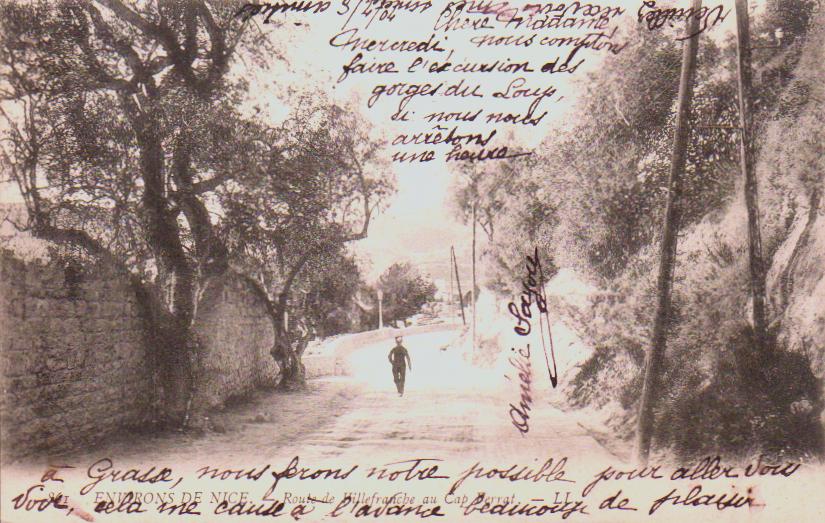 3/4/04
Chère Madame
Mercredi, nous comptons
faire l'excursion des
gorges du Loup,
si nous nous
arrêtons
une heure
à Grasse, nous ferons notre possible pour aller vous
voir, cela me cause à l'avance beaucoup de plaisir
Amélie
ENVIRONS DE NICE. - Route de Villefranche au Cap Ferrat. - LL.